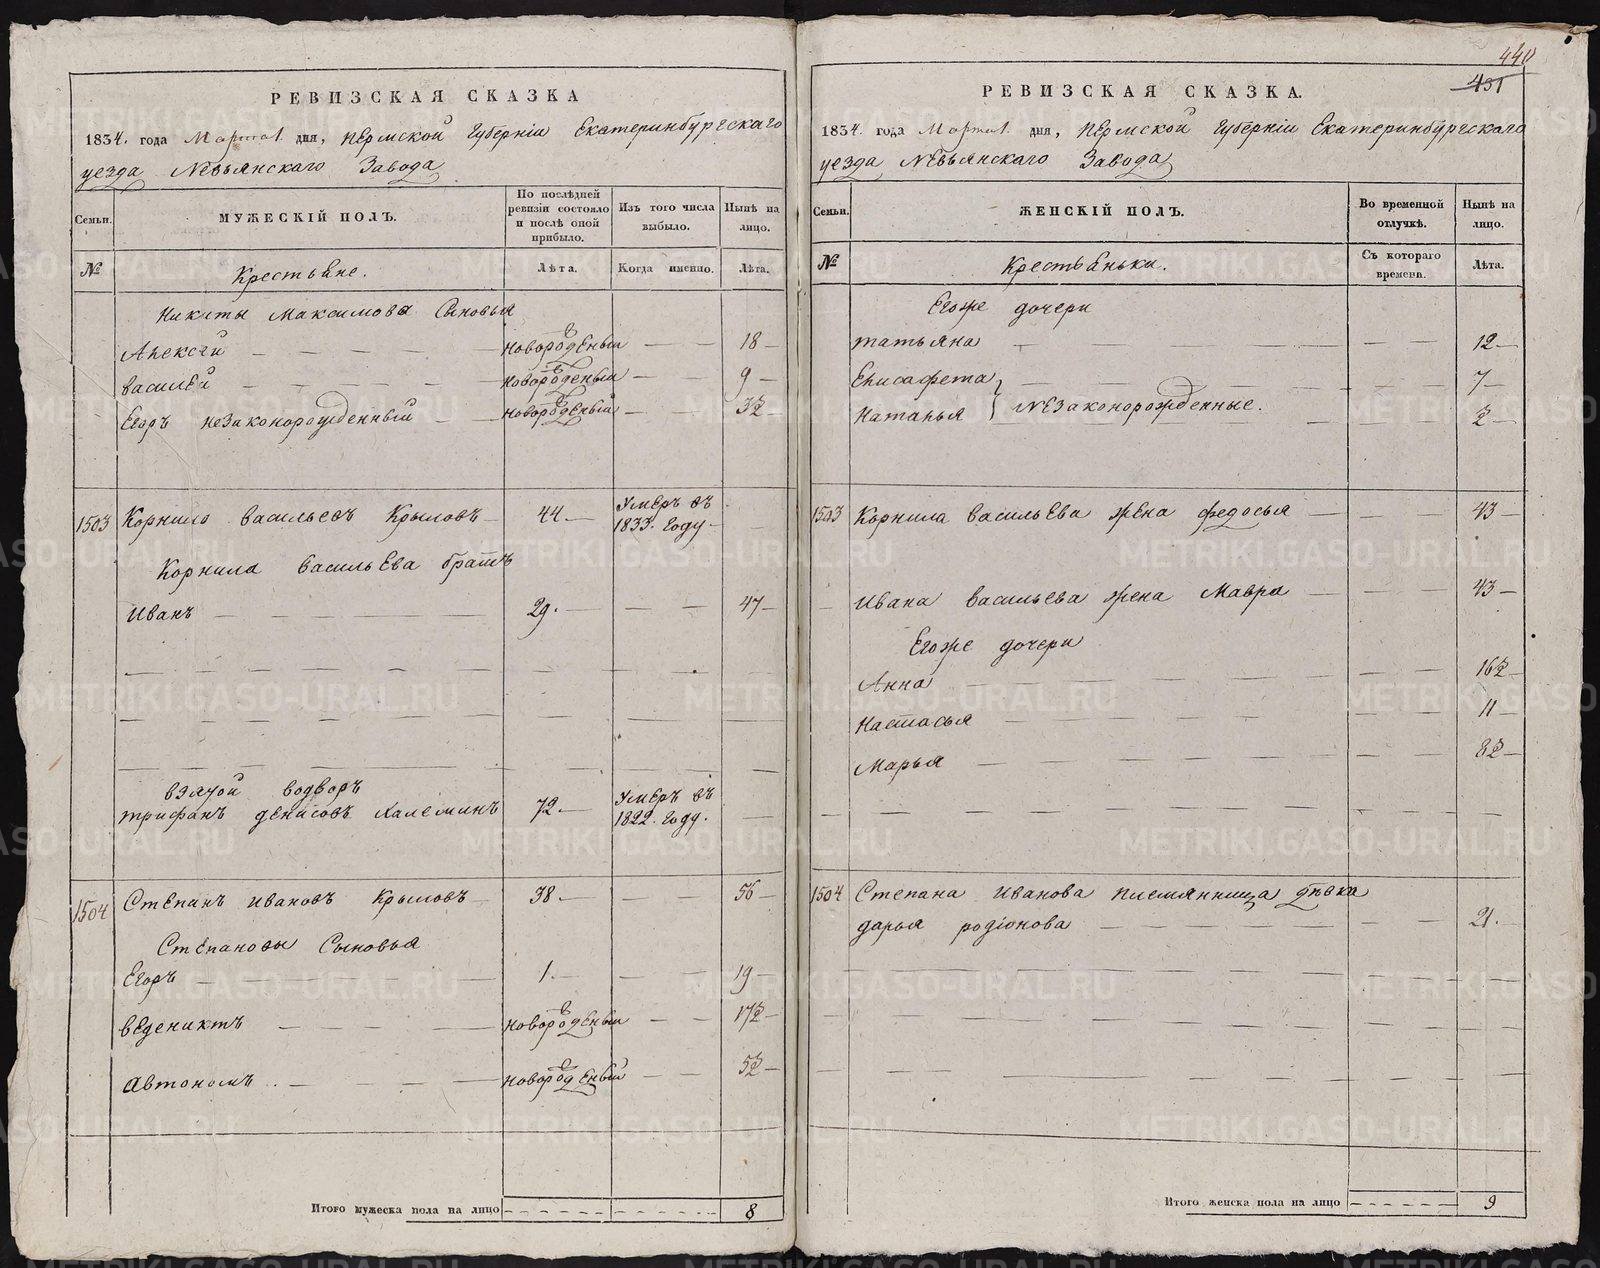 РЕВИЗСКАЯ СКАЗКА
1834. года Марта 1. дня, Пермской Губернiи Екатеринбургскаго
уезда Невьянскаго Завода
Семьи.
МУЖЕСКІЙ ПОЛЪ.
По послѣдней ревизіи состояло и послѣ оной прибыло.
Изъ того числа выбыло.
Нынѣ на лицо.
№
Крестьяне.
Лѣта.
Когда именно.
Лѣта.
Никиты Максимова Сыновья
Алексѣй новорожденый 18
василей новорожденый 9
Егоръ незаконорожденный новорожденый 3½
1503 Корнило васильевъ Крыловъ 44. Умеръ въ 1833. Году
Корнила васильева братъ
Иванъ 29. 47
взятой водворъ
трифанъ денисовъ 72. Умеръ въ 1822. Году.
1504 Степанъ ивановъ Крыловъ 38. 56
Степановы Сыновья
Егоръ 1. 19
веденихтъ новорожденый 17½
Автономъ новорожденый 5½
Итого мужеска пола на лицо 8
440
431
РЕВИЗСКАЯ СКАЗКА.
1834. года Марта 1. дня, Пермской Губернiи Екатеринбургскаго
уезда Невьянскаго Завода
Семьи.
ЖЕНСКІЙ ПОЛЪ.
Во временной отлучкѣ.
Нынѣ на лицо.
№
Крестьяньки.
Съ котораго времени.
Лѣта.
Егоже дочери
татьяна 12
Елисафета 7
Наталья незаконорожденные. 2
1503 Корнила васильева жена федосья 43
Ивана васильева жена Мавра 43
Егоже дочери
Анна 16½
Настасья 11
Марья 8½
1504 Степана Иванова племянница дѣвка
дарья родiонова 21.
Итого женска пола на лицо 9
METRIKI.GASO-URAL.RU